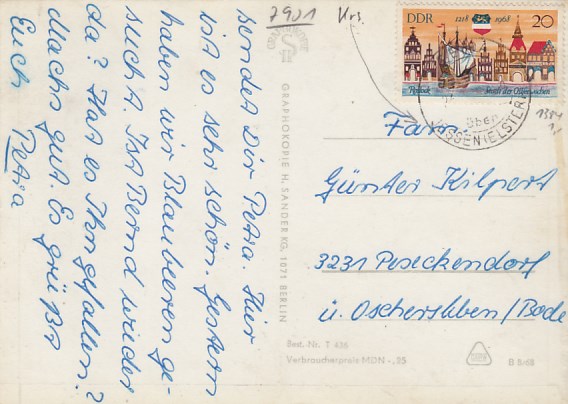 sendet Dir Petra. Hier
ist es sehr schön. Gestern
haben wir Blaubeeren ge-
sucht. Ist Bernd wieder
da? Hat es Ihm gefallen?
Machs gut. Es grüßt
Euch Petra
7901
GRAPHOKOPIE H. SANDER KG, 1071 BERLIN
DDR 1218 1968 20
Rostock Stadt der Ostseewochen
Fam.
Günter Kilpert
3231 Peseckendorf
ü. Oschersleben/Bode
Best. Nr. T 436
Verbraucherpreis MDN -,25
B 8/68